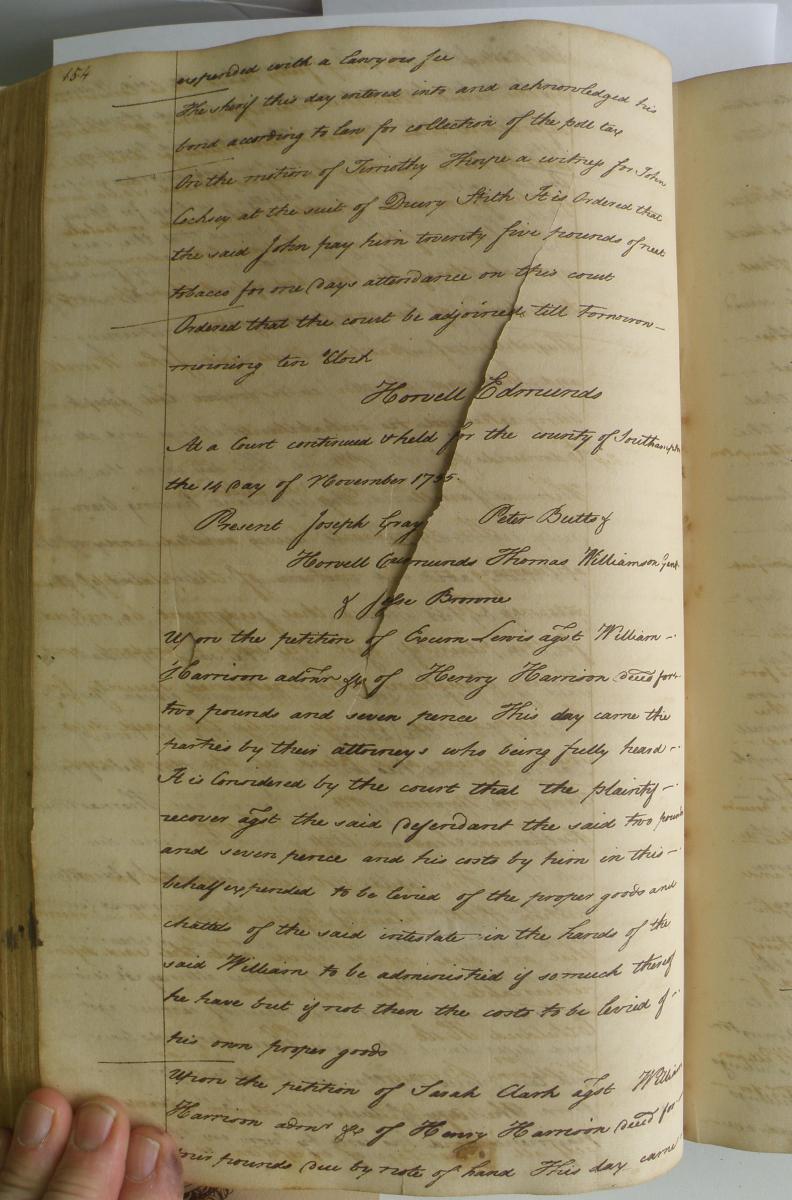 154
expended with a lawyers fee
The sherif this day entered into and acknowledged his
bond according to law for collection of the poll tax
On the motion of Timothy Thorpe a witness for John
at the suit of Drury Stith It is Ordered that
the said John pay him twenty five pounds of neet
tobacco for one days attendance on this court
Ordered that the court be adjoined till Tomorrow-
morning ten Clock
Howell Edmunds
At a Court continued & held for the county of Southampton
the 14 day of November 1755.
Present Joseph Gray Peter Butts &
Howell Edmunds Thomas Williamson Gent
& Jesse Browne
Upon the petition of Exum Lewis agst William -
Harrison admr &c of Henry Harrison deced for-
two pounds and seven pence This day came the
parties by their attorneys who being fully heard -
It is Considered by the court that the plaintif -
recover agst the said defendant the said two pounds
and seven pence and his costs by him in this -
behalf expended to be levied of the proper goods and
chatteds of the said intestate in the hands of the
said William to be administred if so much thereof
he have but if not then the costs to be levied of -
his own proper goods
Upon the petition of Sarah Clark agst William
Harrison admr &c of Henry Harrison deced for-
pounds due by note of hand This day came